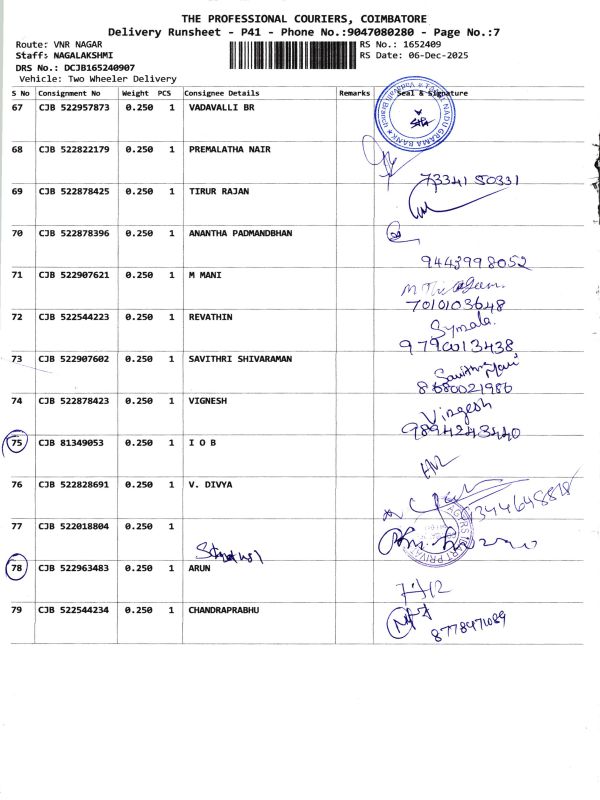 THE PROFESSIONAL COURIERS, COIMBATORE
Delivery Runsheet - P41 - Phone No.:9047080280 - Page No.:7
Route: VNR NAGAR RS No.: 1652409
Staff: NAGALAKSHMI RS Date: 06-Dec-2025
DRS No.: DCJB165240907
Vehicle: Two Wheeler Delivery
S No Consignment No Weight PCS Consignee Details Remarks Seal & Signature
67 CJB 522957873 0.250 1 VADAVALLI BR
TAMIL NADU GRAMA BANK
68 CJB 522822179 0.250 1 PREMALATHA NAIR
73341 50331
69 CJB 522878425 0.250 1 TIRUR RAJAN
70 CJB 522878396 0.250 1 ANANTHA PADMANDBHAN
9443998052
71 CJB 522907621 0.250 1 M MANI
7010103648
72 CJB 522544223 0.250 1 REVATHIN
Symala.
9790013438
73 CJB 522907602 0.250 1 SAVITHRI SHIVARAMAN
8680021986
74 CJB 522878423 0.250 1 VIGNESH
Virgesh
9894243440
75 CJB 81349053 0.250 1 I O B
H/12
76 CJB 522828691 0.250 1 V. DIVYA
77 CJB 522018804 0.250 1
78 CJB 522963483 0.250 1 ARUN
79 CJB 522544234 0.250 1 CHANDRAPRABHU
8778471089